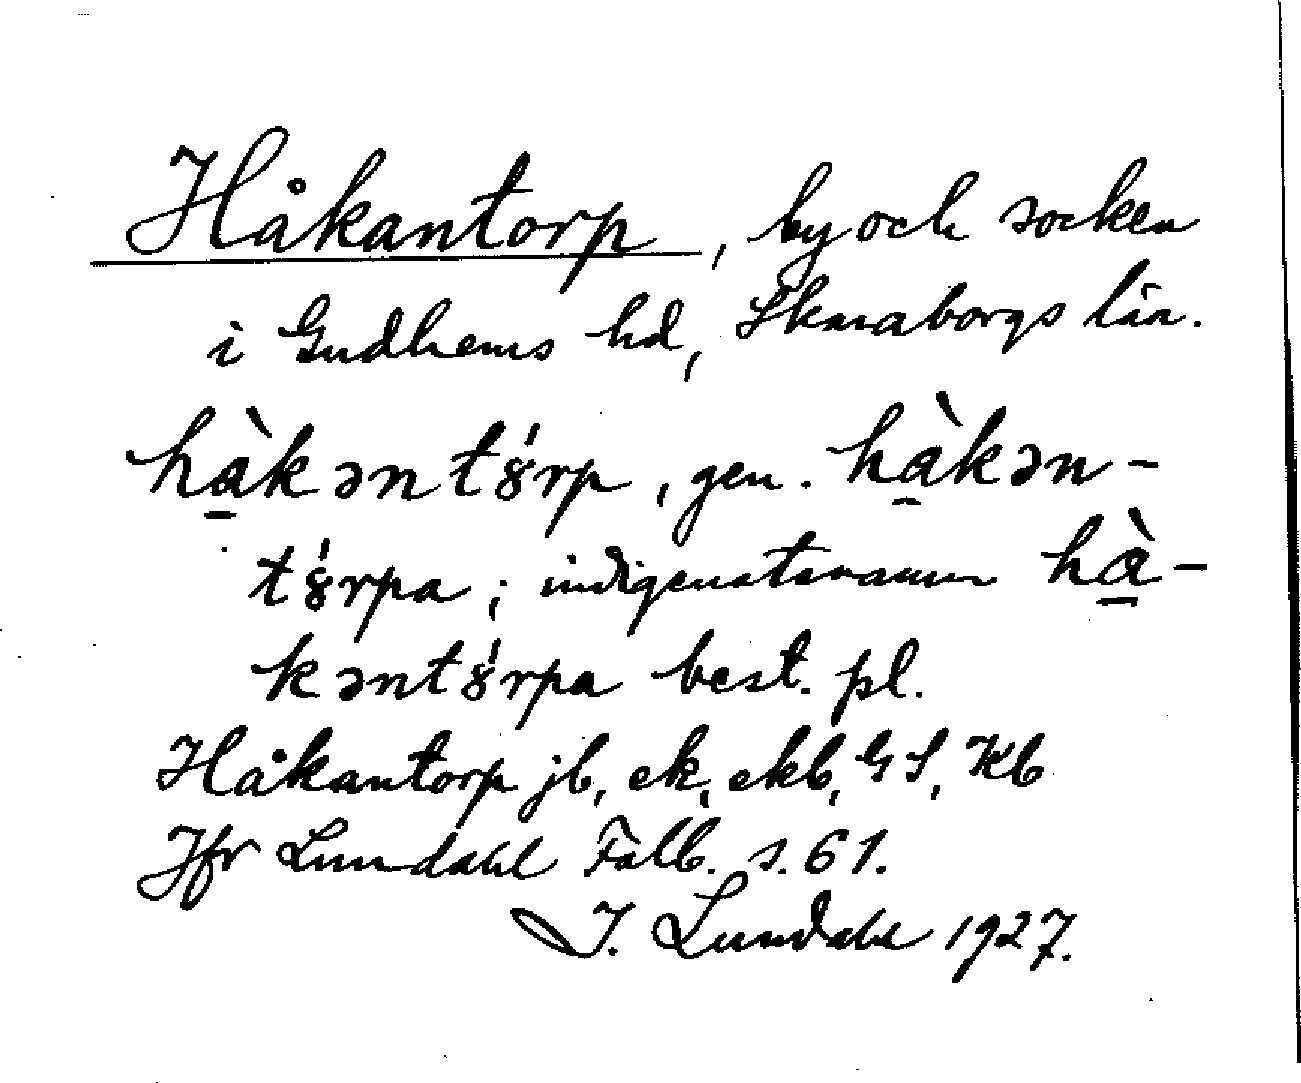 Håkantorp, by och socken
i Gudhems hd, Skaraborgs län.
hàkəntȣ́rp, gen. hàkən-
tȣ́rpa; indigenatsnamn hà-
kəntȣ́rpa best. pl.
Håkantorp jb, ek, ekb, GS, Kb
Jfr Lundahl Falb. s. 61.
I. Lundahl 1927.